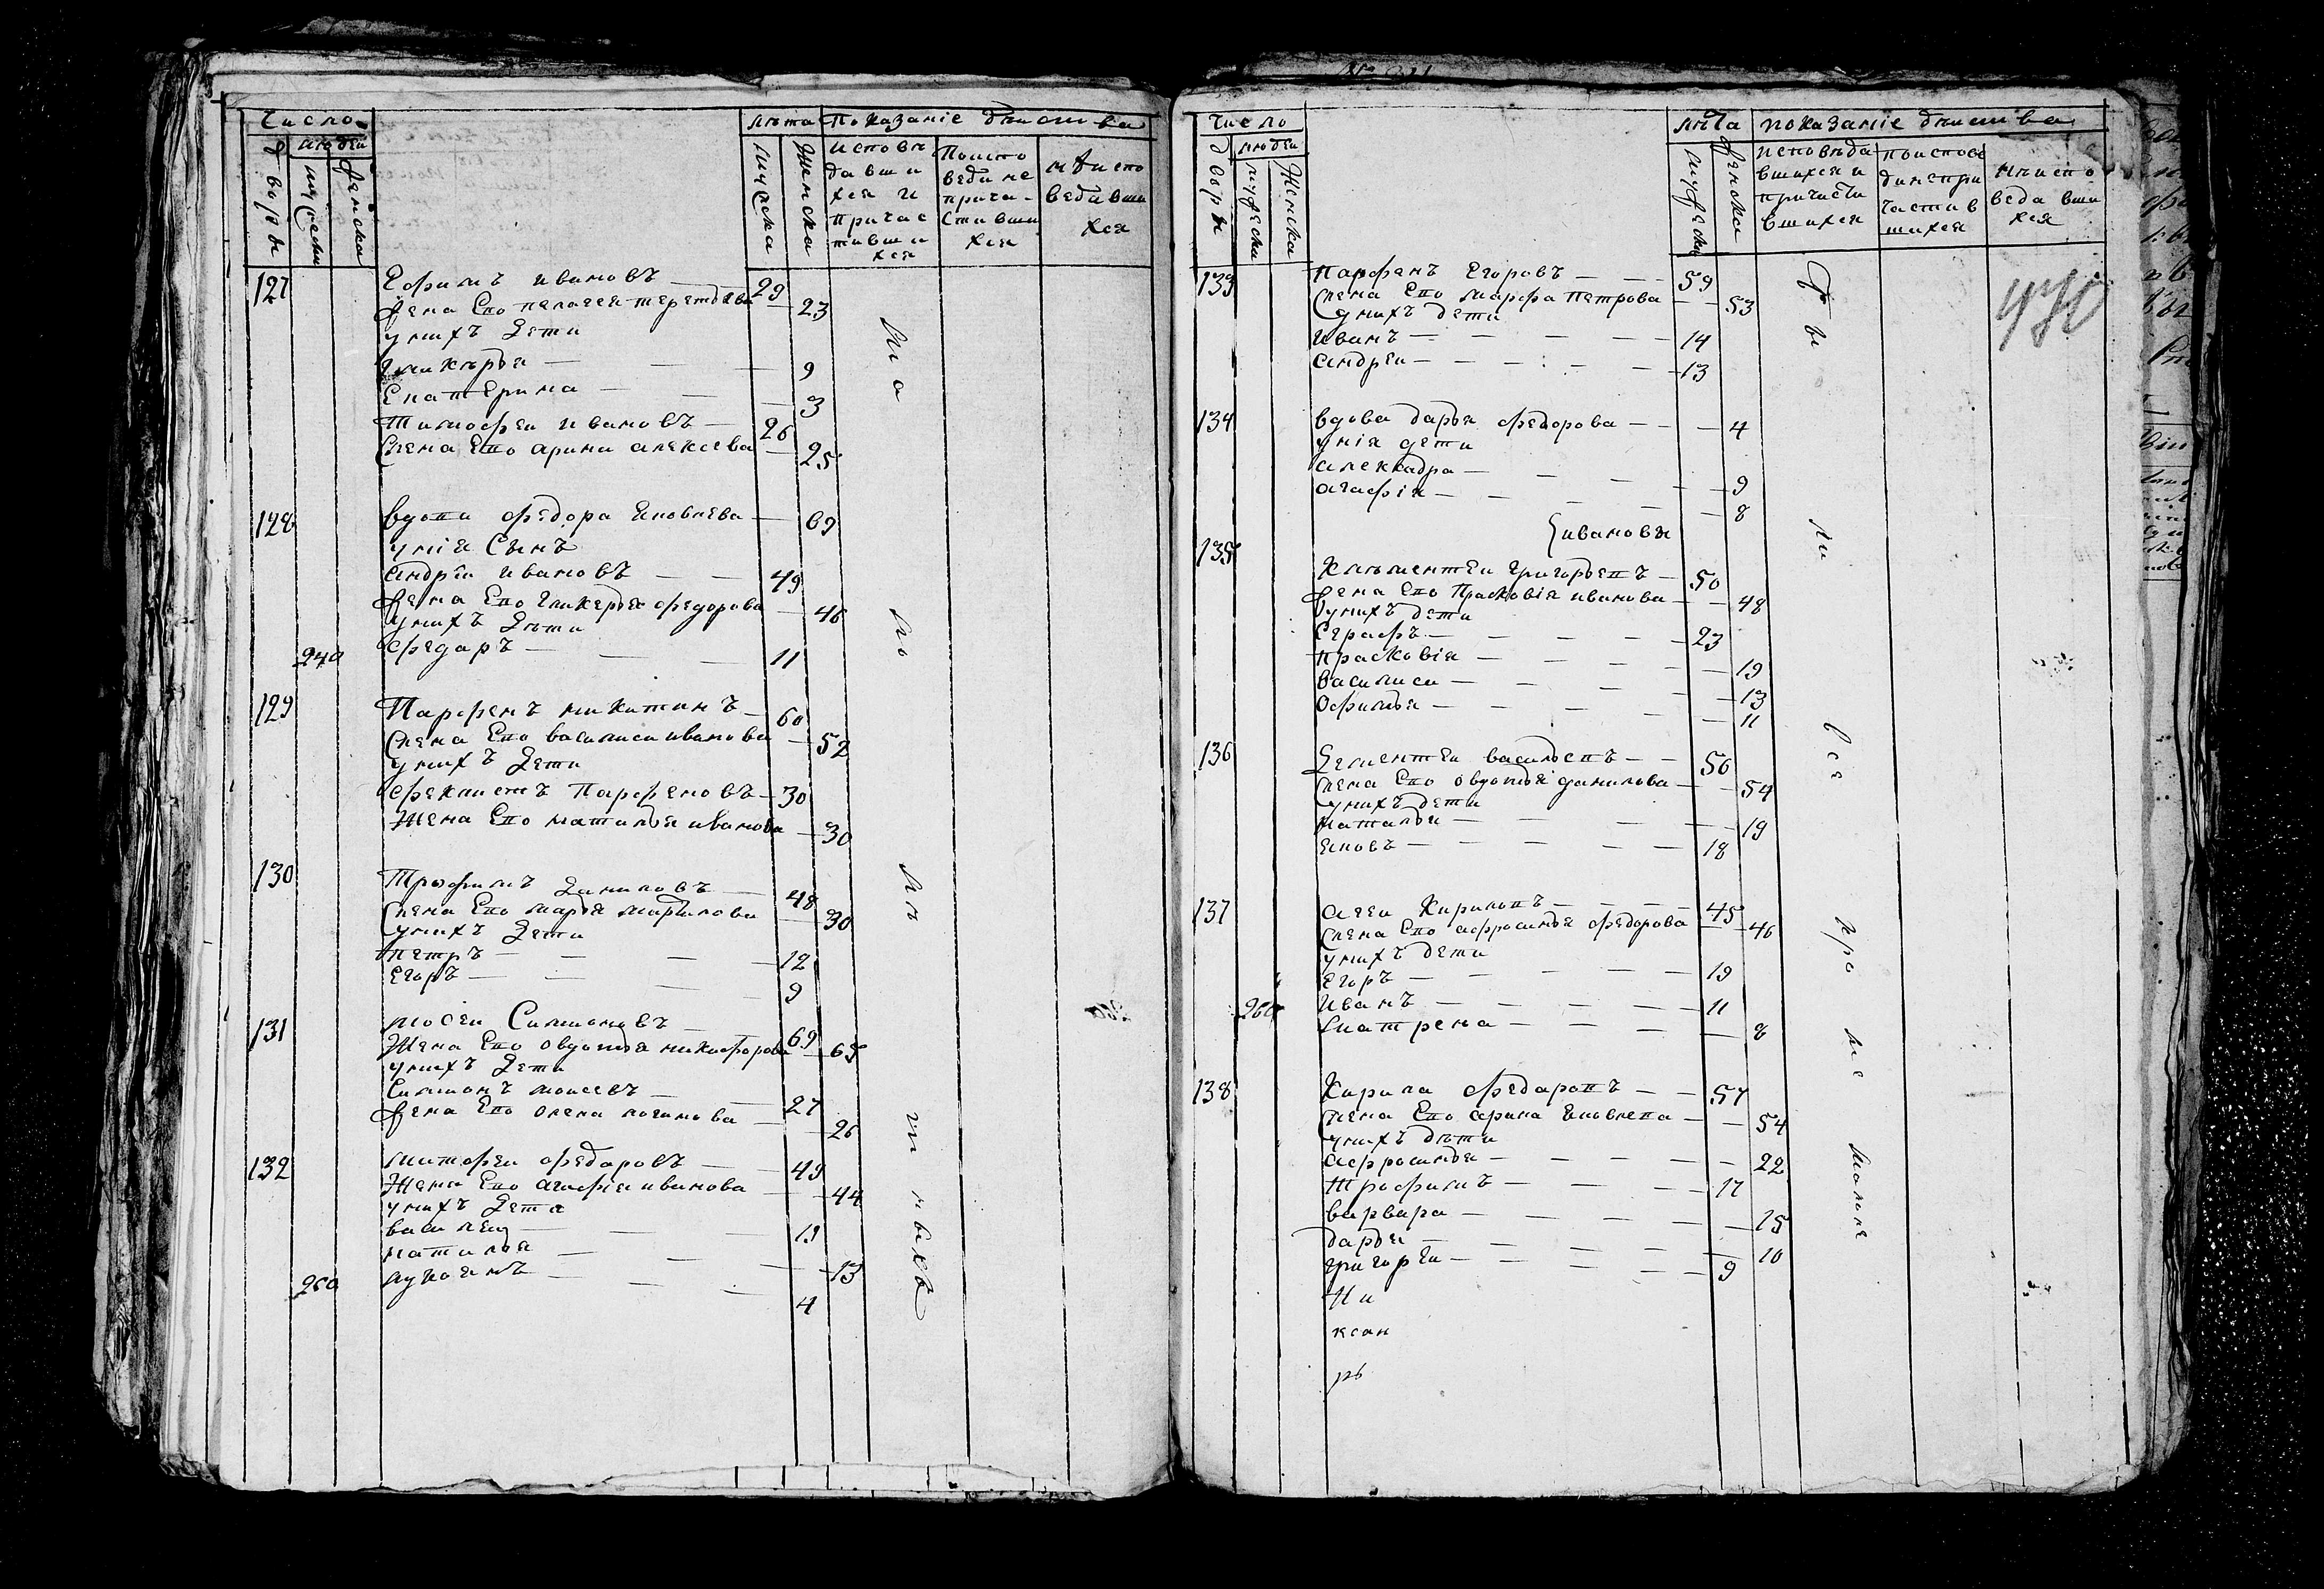 число
людей
дворы
мужеска
женска
лѣта
показаніе действа
мужеска
женска
исповѣдавшихся и причастившихся
по исповеди не причастившихся
не исповедавшихся
127
Ефимъ ивановъ — 29
жена Его пелагея терентьева — 23
униχъ Дети
гликѣрья — 9
Екатерина — 3
Тимофеи ивановъ — 26
жена Его арина алексеева — 25
128
вдова федора яковлева — 69
унія Сынъ
андрѣи ивановъ — 49
жена Его гликерья федорова — 46
унихъ Дѣти
240 федаръ — 11
129
Парфенъ никитинъ — 60
жена Его василиса иванова — 52
унихъ Дети
феклистъ Парфеновъ — 30
Жена Его наталья иванова — 30
130
Трофимъ Даниловъ — 48
жена Его Марья 30
унихъ Дети
петръ — 12
Егоръ — 9
131
мосеи Симионовъ — 69
Жена Его овдотья никифорова — 65
унихъ Дети
Симионъ моисевъ — 27
жена Его олена логинова — 26
132
митофеи федаровъ — 49
Жена Его агафія иванова — 44
унихъ Дети
василеи — 19
наталья — 13
250 лукоянъ — 4
число
людеи
дворы
мужеска
Женска
лѣта
показаніе действа
мужеска
женска
исповѣдавшихся и причастившихся
по исповединепричастившихся
неисповедавшихся
133
парфенъ Егоровъ — 59
жена Его марфа петрова — 53
унихъ дети
иванъ — 14
андреи — 13
134
вдова дарья федорова — 4
унія дети
алексадра — 9
агафія — 8
ивановы
135
Климентеи григорьевъ — 50
жена Его Прасковія иванова — 48
унихъ дети
Серафъ — 23
прасковія — 19
василиса — 13
офимья — 11
136
Дементеи васильевъ — 56
жена Его овдотья данилова — 54
унихъ дети
наталья — 19
яковъ — 18
137
агеи Кириловъ — 45
жена Его афросинья федорова — 46
унихъ дети
Егоръ — 19
260 иванъ — 11
матрена — 8
138
Кирила федаровъ — 57
жена Его арина яковлева — 54
унихъ дѣти
афросинья — 22
трофимъ — 17
варвара — 15
дарья — 10
григореи — 9